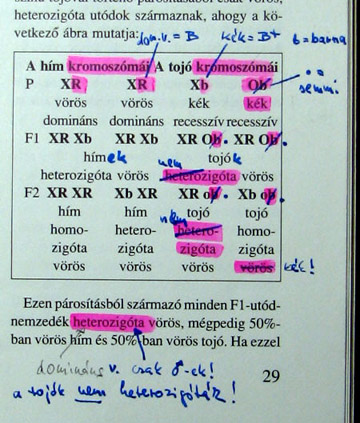 heterozigóta utódok származnak, ahogy a kö-
vetkező ábra mutatja: dom.v. = B kék = B+ b = barna
A hím kromoszómái A tojó kromoszómái
P XR XR Xb Ob • • semmi
vörös vörös kék kék
domináns domináns recesszív recesszív
F1 XR Xb XR Xb XR Ob • XR Ob •
hímek nem tojók
heterozigóta vörös heterozigóta vörös
F2 XR XR Xb XR XR ob • Xb ob •
hím hím tojó tojó
homo- hetero- nem hetero- homo-
zigóta zigóta zigóta zigóta
vörös vörös vörös vörös kék!
Ezen párosításból származó minden F1-utód-
nemzedék heterozigóta vörös, mégpedig 50%-
ban vörös hím és 50%-ban vörös tojó. Ha ezzel
domináns v. csak ♂-ek!
29
a tojók nem heterozigóták!